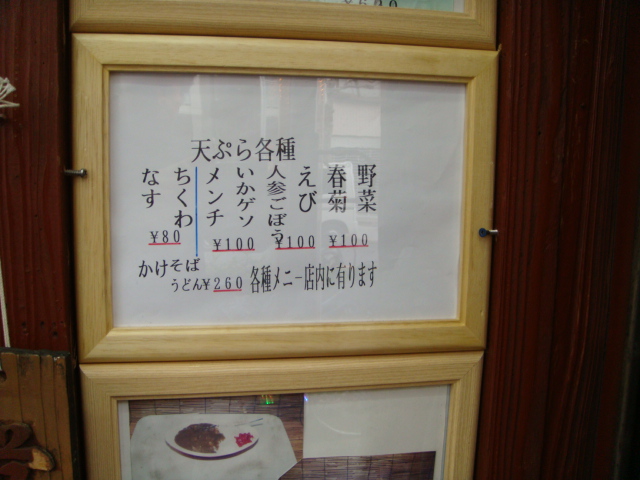 天ぷら各種
野菜
春菊
¥100
えび
人参ごぼう
¥100
いかゲソ
メンチ
¥100
ちくわ
なす
¥80
かけそば
うどん¥260
各種メニー店内に有ります